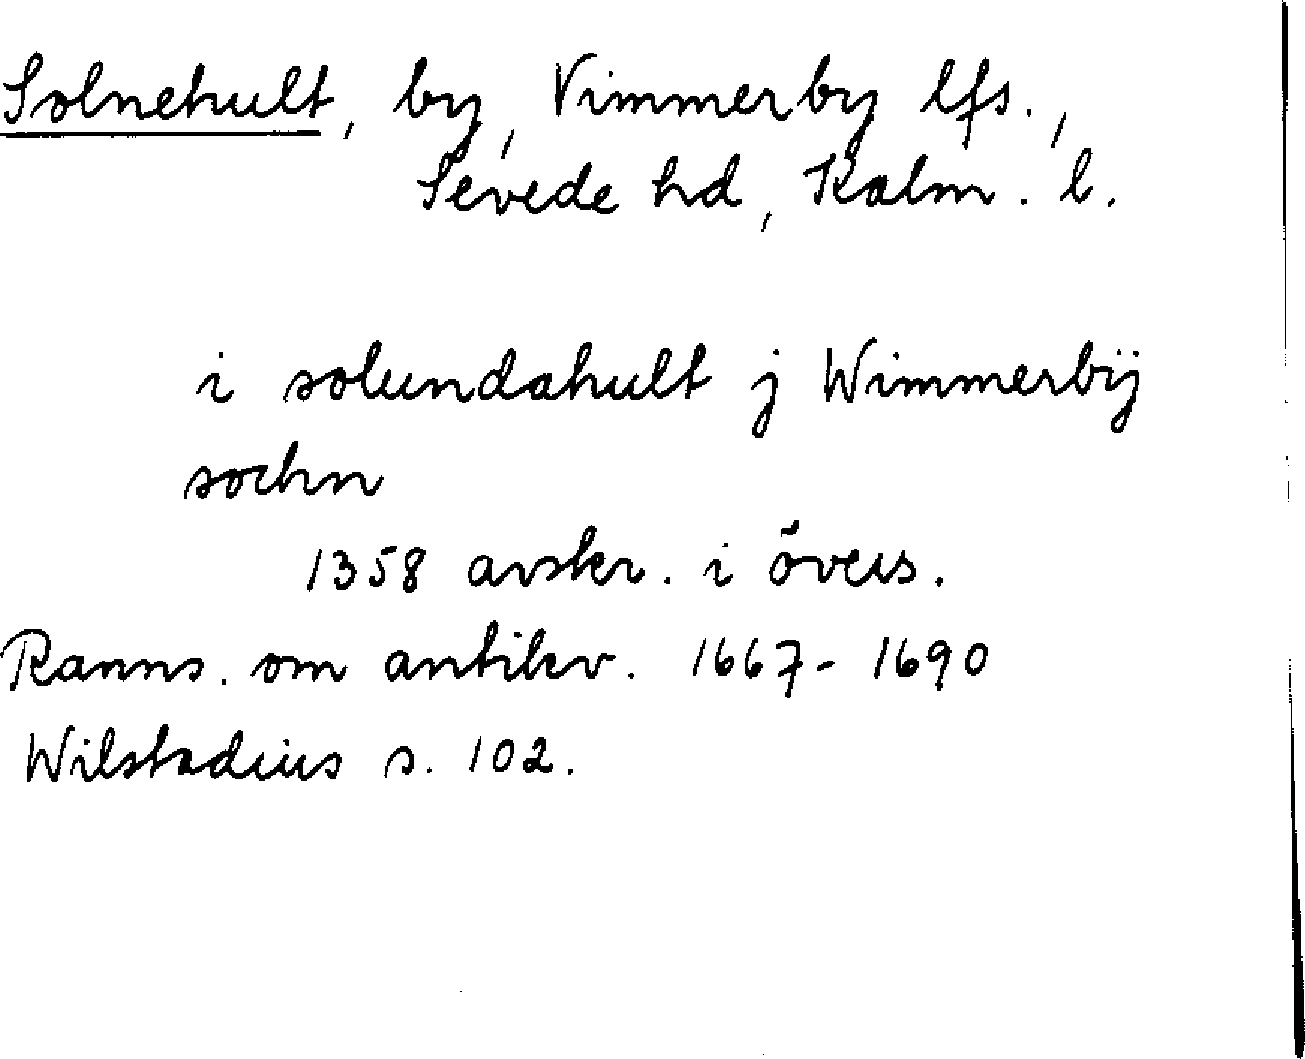 Solnehult, by, Vimmerby lfs.,
Sevede hd, Kalm. l.
i solundahult j Wimmerbÿ
sochn
1358 avskr. i övers.
Ranns. om antikv. 1667-1690
Wilstadius s. 102.